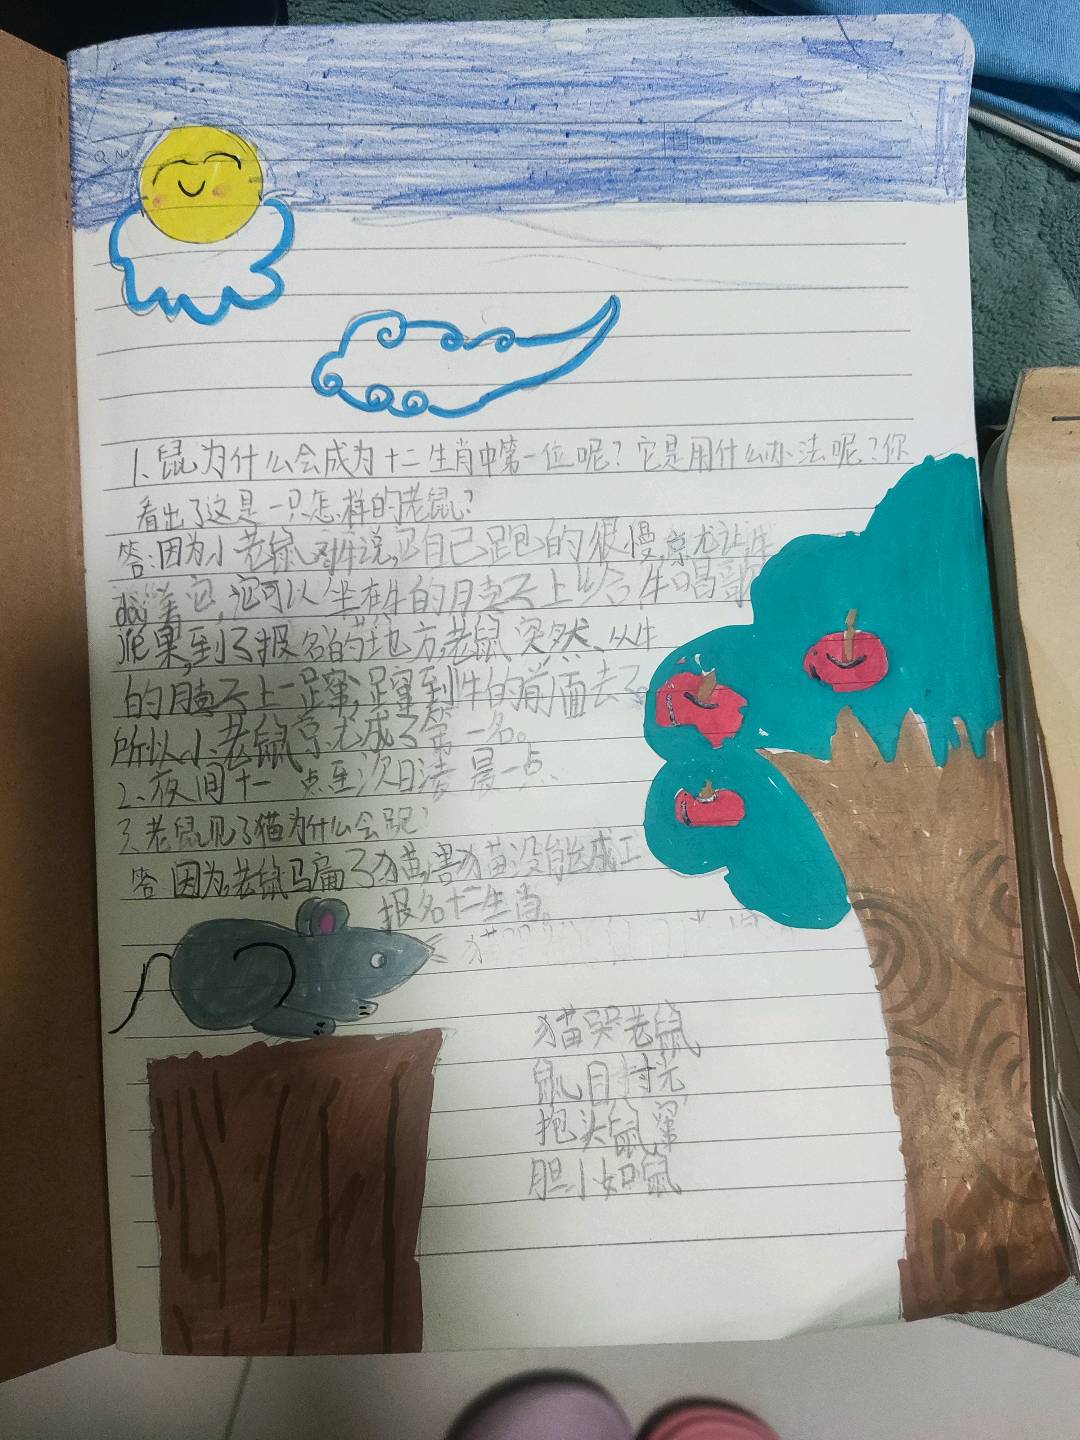 1、鼠为什么会成为十二生肖中第一位呢？它是用什么办法呢？你
看出了这是一只怎样的老鼠？
答：因为小老鼠对牛说，自己跑的很慢就让牛
dāi着它，它可以坐在牛的背上给牛唱歌
果到了报名的地方老鼠突然从牛
的背上一蹿，蹿到牛的前面去了
所以小老鼠就成了第一名。
2、夜间十一点至次日凌晨一点、
3、老鼠见了猫为什么会跑？
答：因为老鼠骗了猫，害猫没能成工
报名十二生肖。
猫哭老鼠
鼠目寸光
抱头鼠窜
胆小如鼠